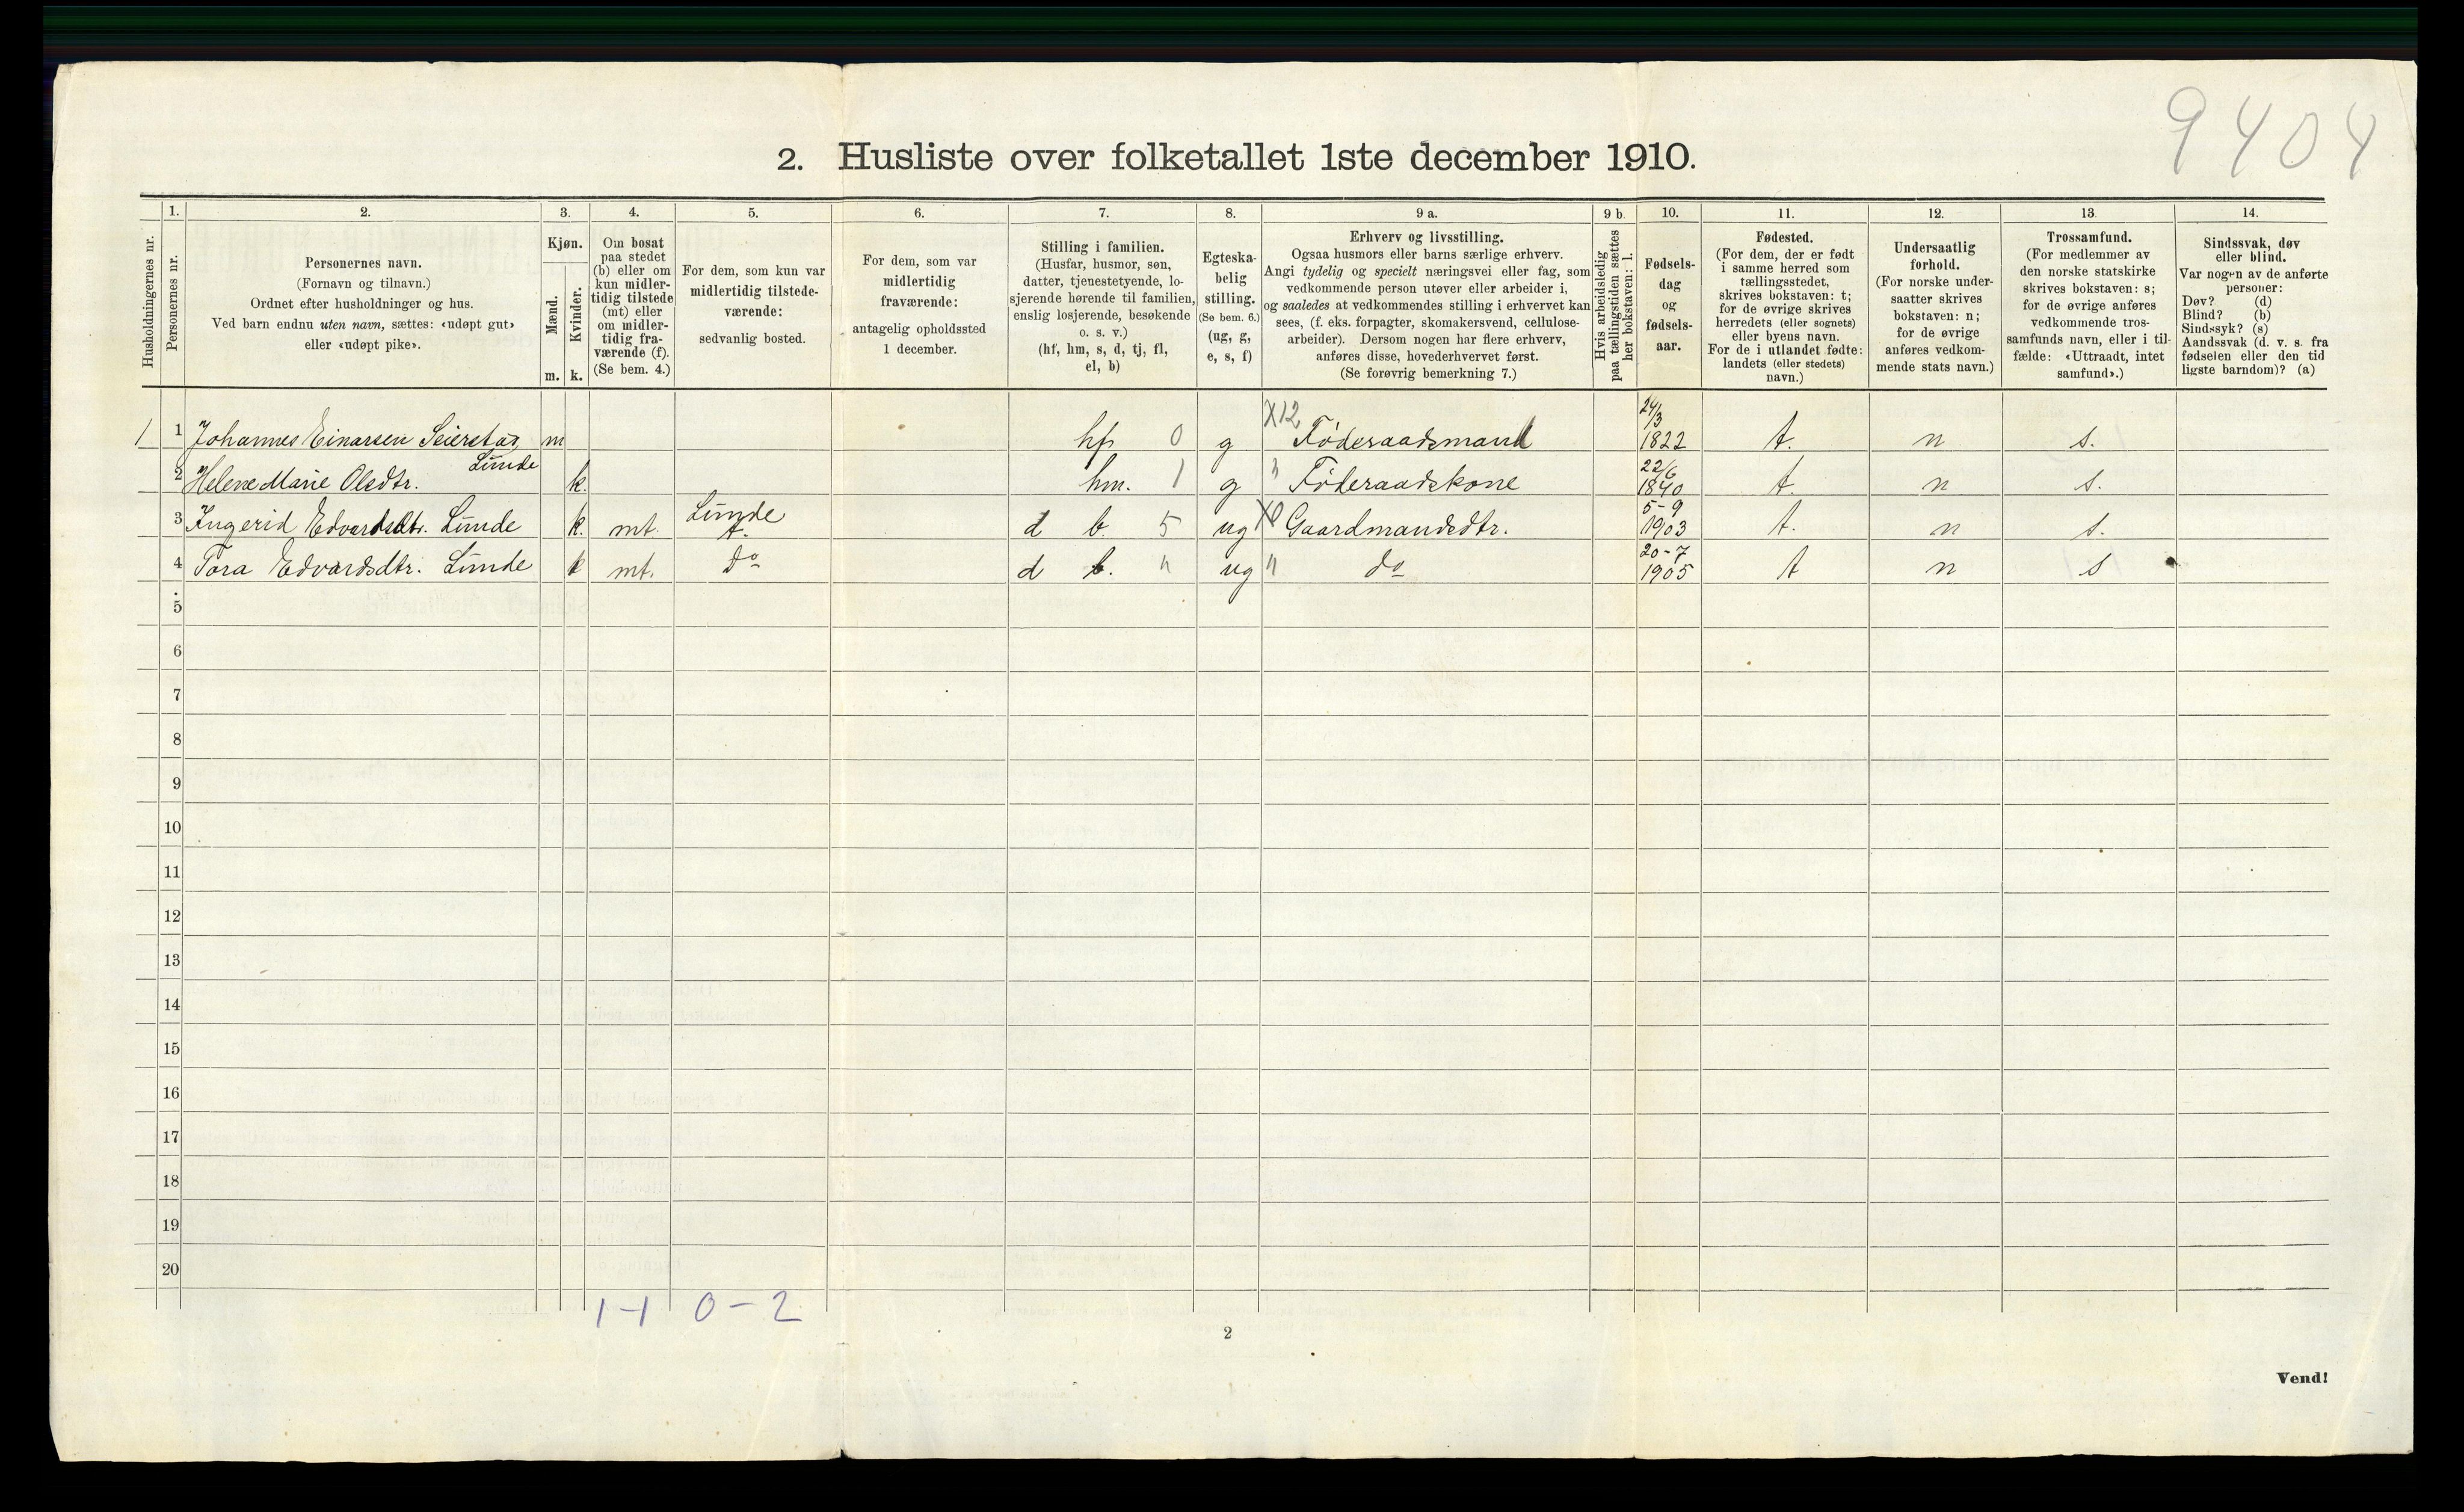 9404
2. Husliste over folketallet 1ste december 1910.
Husholdningernes nr.
1.
Personernes nr.
2.
Personernes navn.
(Fornavn og tilnavn.)
Ordnet efter husholdninger og hus.
Ved barn endnu uten navn, sættes: «udøpt gut»
eller «udøpt pike».
3.
Kjøn.
Mænd.
Kvinder.
m. k.
4.
Om bosat
paa stedet
(b) eller om
kun midler-
tidig tilstede
(mt) eller
om midler-
tidig fra-
værende (f).
(Se bem. 4.)
5.
For dem, som kun var
midlertidig tilstede-
værende:
sedvanlig bosted.
6.
For dem, som var
midlertidig
fraværende:
antagelig opholdssted
1 december.
7.
Stilling i familien.
(Husfar, husmor, søn,
datter, tjenestetyende, lo-
sjerende hørende til familien,
enslig losjerende, besøkende
o. s. v.)
(hf, hm, s, d, tj, fl,
el, b)
8.
Egteska-
belig
stilling.
(Se bem. 6.)
(ug, g,
e, s, f)
9 a.
Erhverv og livsstilling.
Ogsaa husmors eller barns særlige erhverv.
Angi tydelig og specielt næringsvei eller fag, som
vedkommende person utøver eller arbeider i,
og saaledes at vedkommendes stilling i erhvervet kan
sees, (f. eks. forpagter, skomakersvend, cellulose-
arbeider). Dersom nogen har flere erhverv,
anføres disse, hovederhvervet først.
(Se forøvrig bemerkning 7.)
9 b.
Hvis arbeidsledig
paa tællingstiden sættes
her bokstaven: l.
10.
Fødsels-
dag
og
fødsels-
aar.
11.
Fødested.
(For dem, der er født
i samme herred som
tællingsstedet,
skrives bokstaven: t;
for de øvrige skrives
herredets (eller sognets)
eller byens navn.
For de i utlandet fødte:
landets (eller stedets)
navn.)
12.
Undersaatlig
forhold.
(For norske under-
saatter skrives
bokstaven: n;
for de øvrige
anføres vedkom-
mende stats navn.)
13.
Trossamfund.
(For medlemmer av
den norske statskirke
skrives bokstaven: s;
for de øvrige anføres
vedkommende tros-
samfunds navn, eller i til-
fælde: «Uttraadt, intet
samfund».)
14.
Sindssvak, døv
eller blind.
Var nogen av de anførte
personer:
Døv? (d)
Blind? (b)
Sindssyk? (s)
Aandssvak (d. v. s. fra
fødselen eller den tid
ligste barndom)? (a)
1 1 Johannes Einarsen Seierstag m hf 0 g X12 Føderaadsmand 24/3 1822 t. n s.
Lunde
2 Helene Marie Olsdtr. k. hm. 1 g " Føderaadskone 22/6 1840 t. n s.
3 Ingerid Edvardsdtr. Lunde k. mt. Lunde t. d b. 5 ug X0 Gaardmandsdtr. 5-9 1903 t. n s.
4 Tora Edvardsdtr. Lunde k mt. do d b. " ug " do 20-7 1905 t n s
5
6
7
8
9
10
11
12
13
14
15
16
17
18
19
20
1-1 0-2
2
Vend!